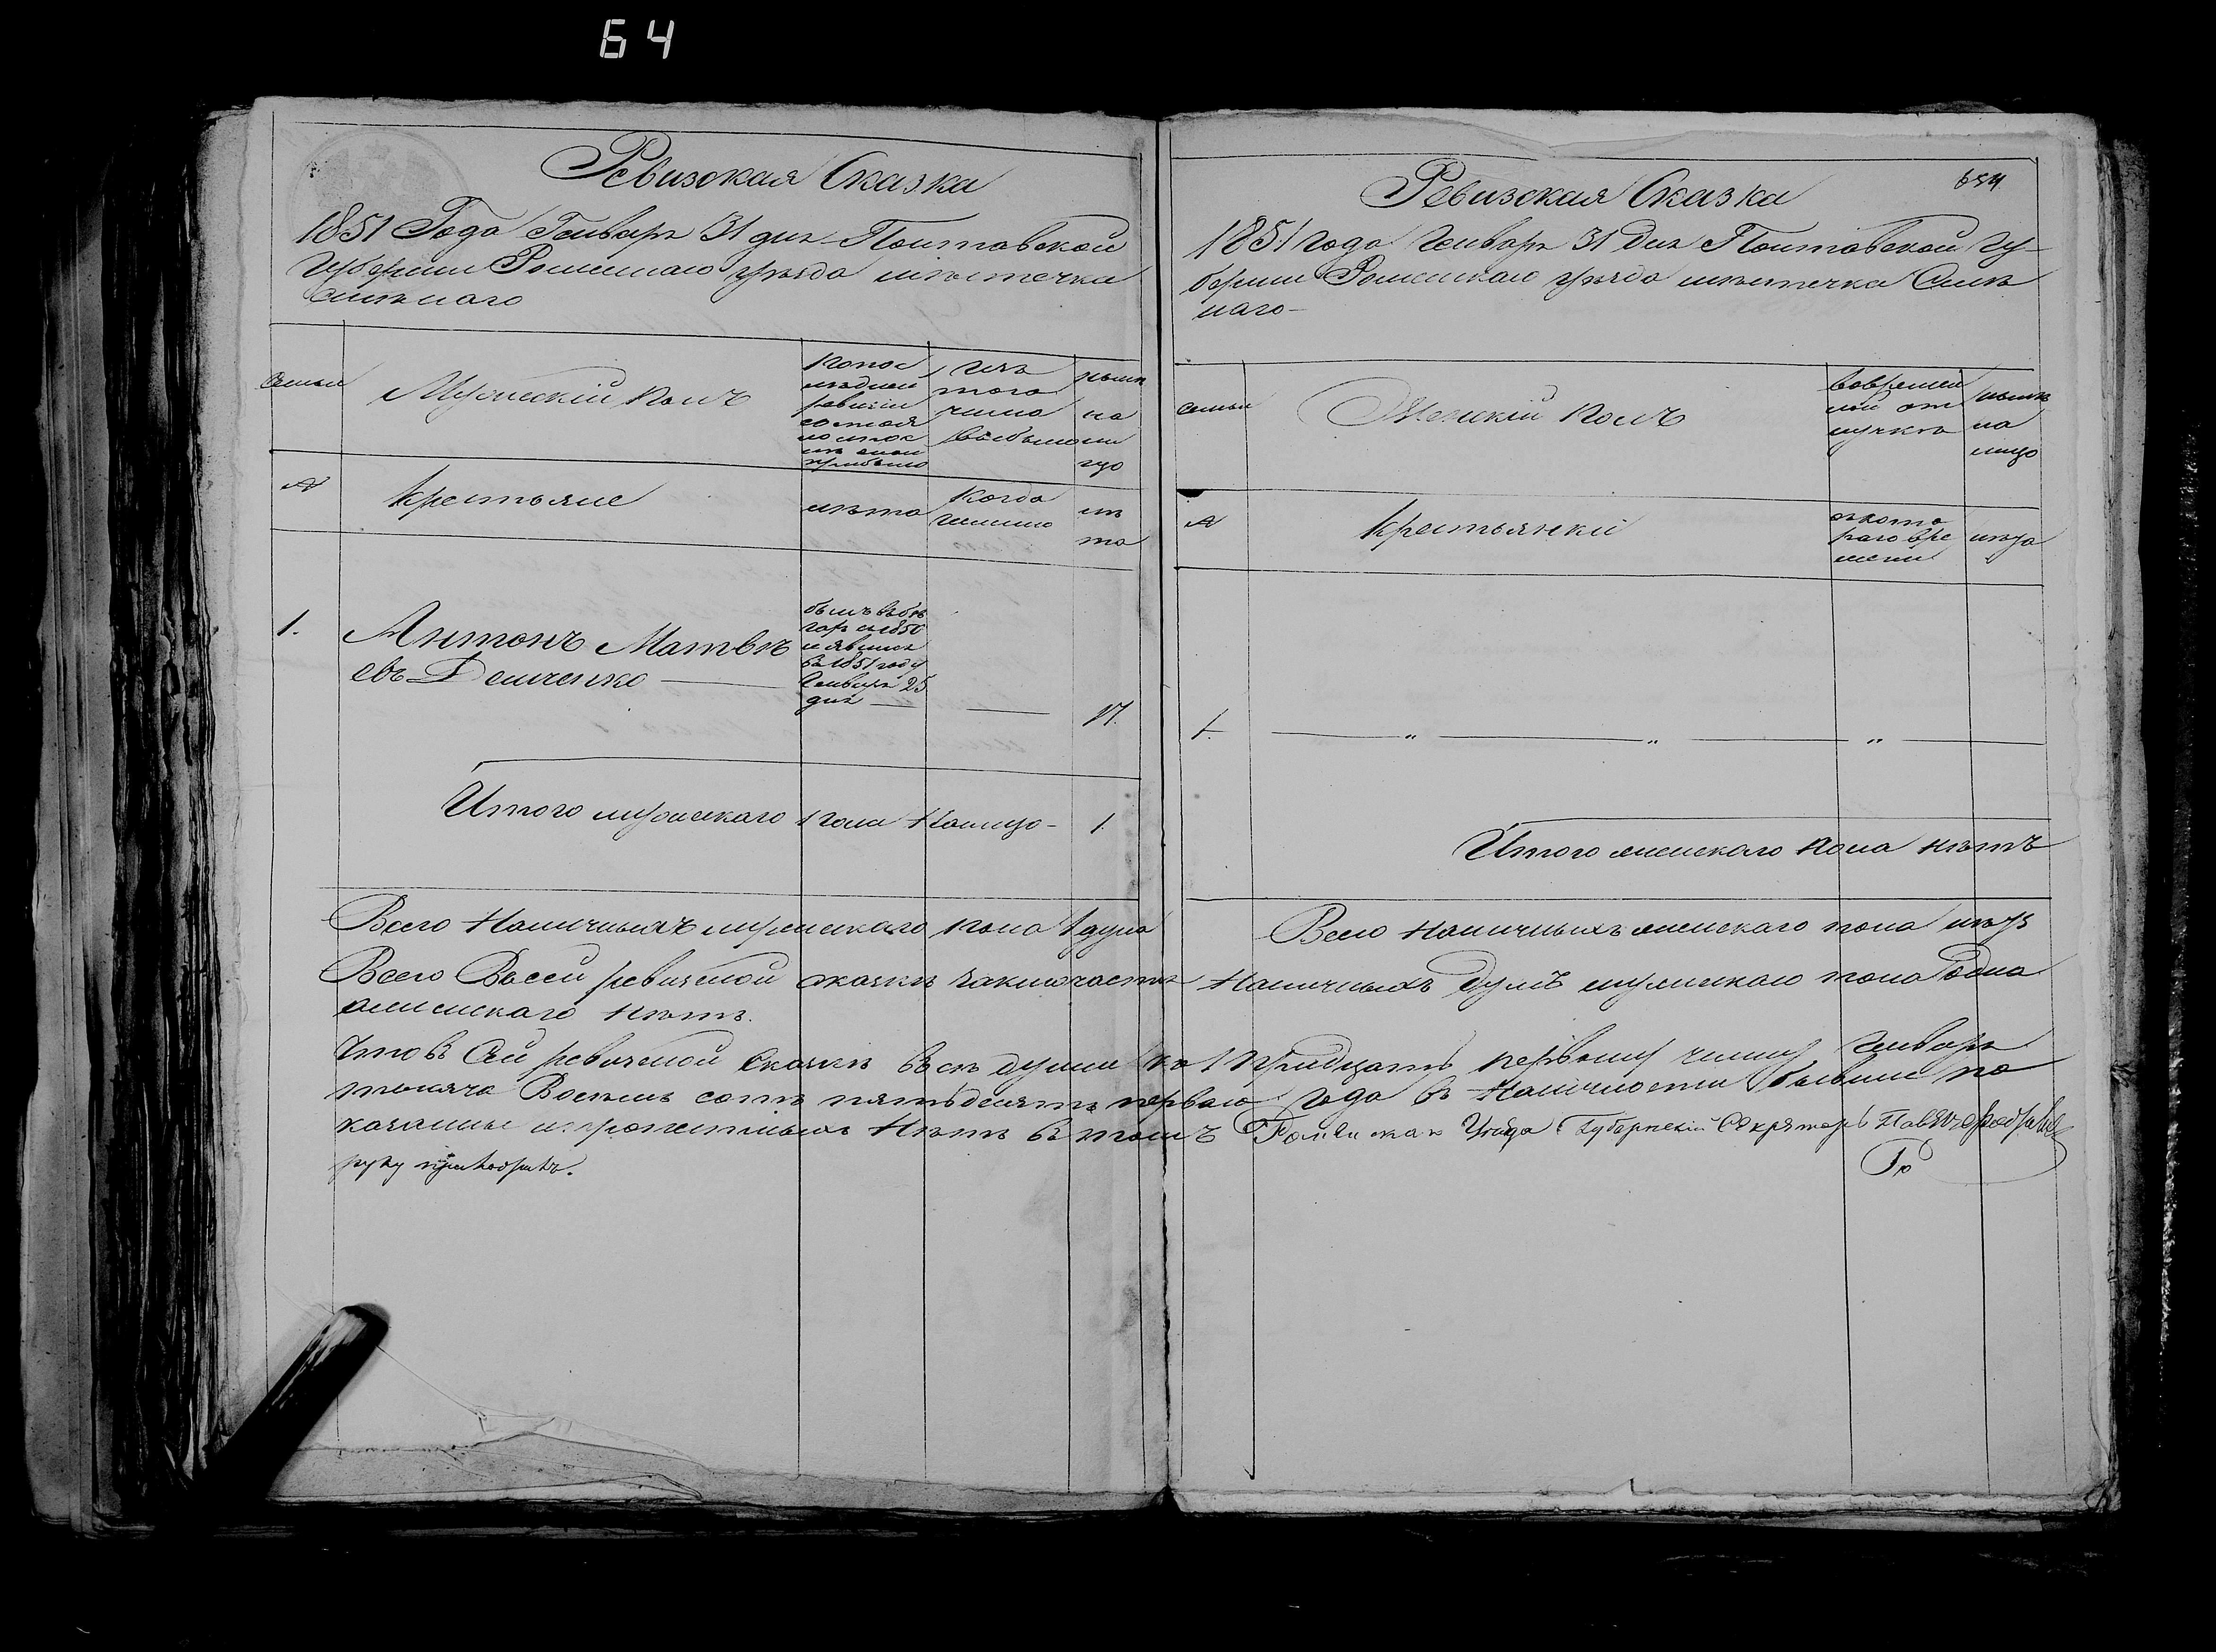 64
Ревизская Сказка
1851 Года Генваря 31 дня Полтавской
Губернии Роменскаго уезда местечка
Смелаго
семьи
Мужеский полъ
по пос
ледней
ревизии
состоя
ло и пос
ле оной
прибыло
Изъ
того
числа
выбыло
ныне
на
ли
цо
№
крестьяне
лета
когда
имянно
ле
та
1.
Антонъ Матве
евъ Демченко
былъ въ бе
гахъ с 1850
и явился
въ 1851 году
Генваря 25
дня
17.
Итого мужескаго пола Налицо - 1.
Всего Наличныхъ мужескаго пола 1 душа
Ревизская Сказка
654
1851 года Генваря 31 Дня Полтавской Гу-
бернии Роменскаго уезда местечка Сме
лаго -
семьи
Женский полъ
во времен
ной от
лучке
ныне
на
лицо
№
крестьянки
съ кото
раго вре
мени
лета
1.
Итого женскаго пола нетъ
Всего наличныхъ женскаго пола нетъ
Всего Въсей ревизской сказке заключается Наличныхъ душъ мужескаго пола одна
женскаго нетъ.
Что въ сей ревизской Сказке все души къ тридцать первому числу Генваря
тысяча Восемь сотъ пятьдесятъ перваго года въ Наличности бывшие по
казаны и пропетныхъ Нетъ въ томъ Роменскаго Уезда Губернский Секретарь Павел
руку приложилъ.